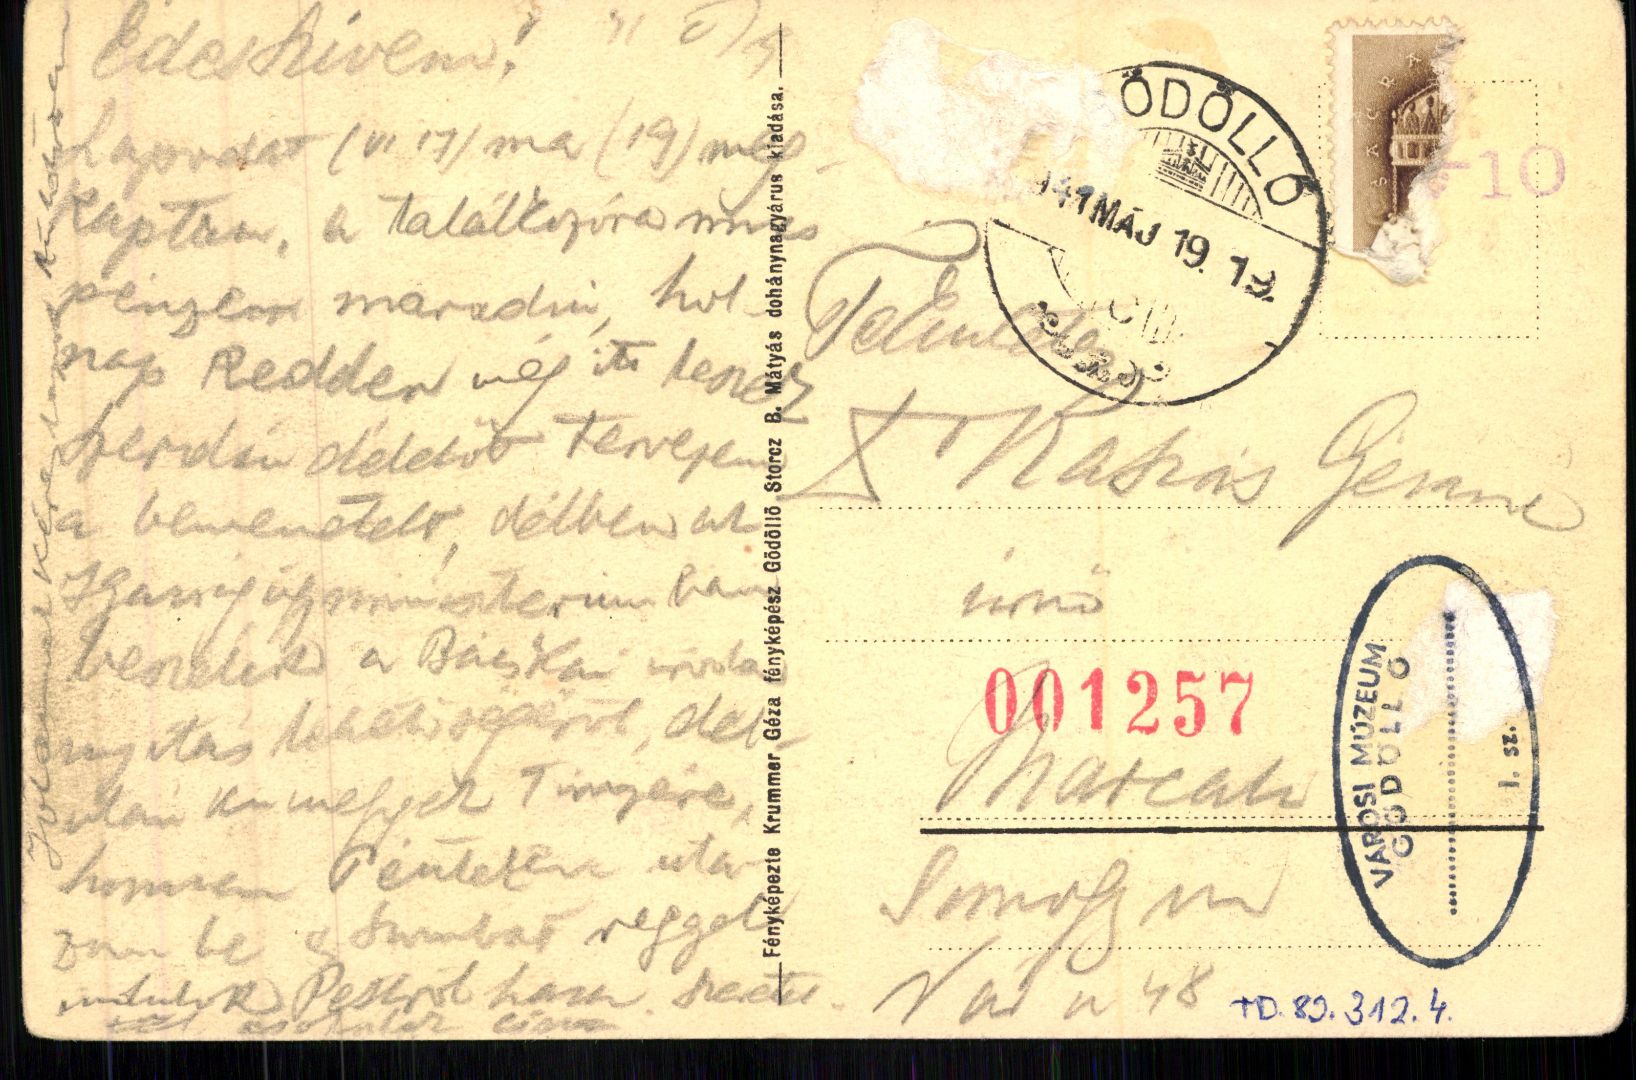 Édes Szívem!
Lapodat (V. 17) ma (19) meg-
kaptam, a találkozóra nincs
pénzem maradni, hol-
nap Kedden még itt leszek
szerdán délelőtt tervezem
a bemenetelt, délben az
Igazságügyminisztériumban
beszélek a Bácskai iroda
nyitás lehetőségéről, dél-
után
honnan Pénteken uta-
zom be s Szombat reggel
indulok Pestről haza.
csókollak
Fényképezte Krummer Géza fényképész Gödöllő, Storcz B. Mátyás dohánynagyárus kiadása.
ÖDÖLLŐ
941 MÁJ 19. 19.
SACRA
-10
Tekintetes
Kaszás Gézáné
úrnő
001257
Marcali
Somogy m
Vár u 48
VÁROSI MÚZEUM
GÖDÖLLŐ
l. sz.
TD. 89. 312. 4.